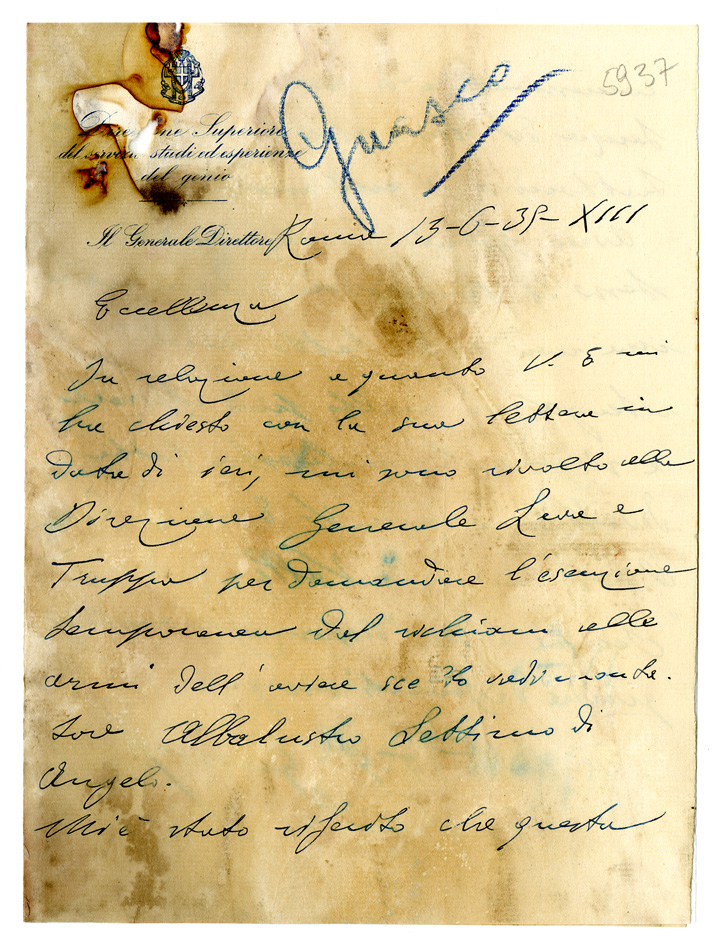 Guasco
5937
Direzione Superiore
del servizio studi ed esperienze
del genio
Il Generale Direttore
Roma 13-6-35-XIII
Eccellenza
In relazione a quanto V. E mi
ha chiesto con la sua lettera in
data di ieri, mi sono rivolto alla
Direzione Generale Leva e
Truppa per domandare l'esenzione
temporanea dal richiamo alle
armi dell'aviere scelto radiomonta-
tore Albalustro Settimo di
Angelo.
Mi è stato riferito che questa